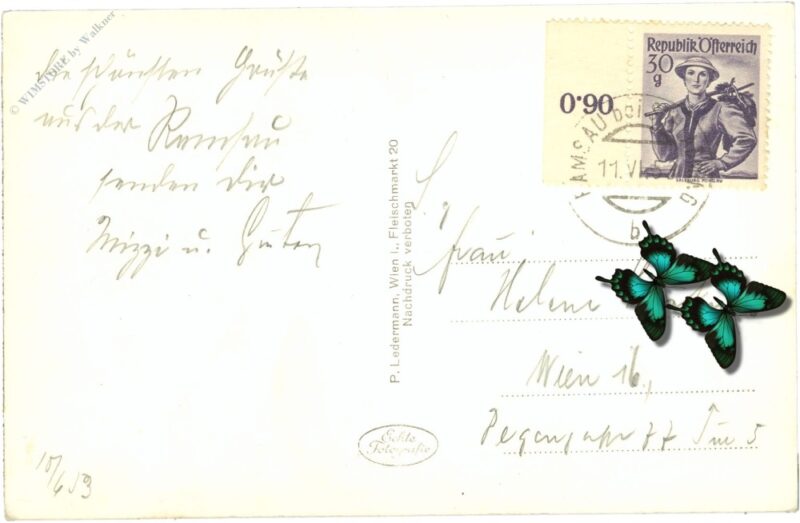 © WIMSTORE by Walkner
Die schönsten Grüße
aus der Ramsau
senden Dir
Mizzi u.
10/6 53
P. Ledermann, Wien I., Fleischmarkt 20
Nachdruck verboten
Echte
Fotografie
0·90
Republik Österreich
30
g
RAMSAU bei
11.VI
b
Frau
Helene
Wien 16.,
77 5